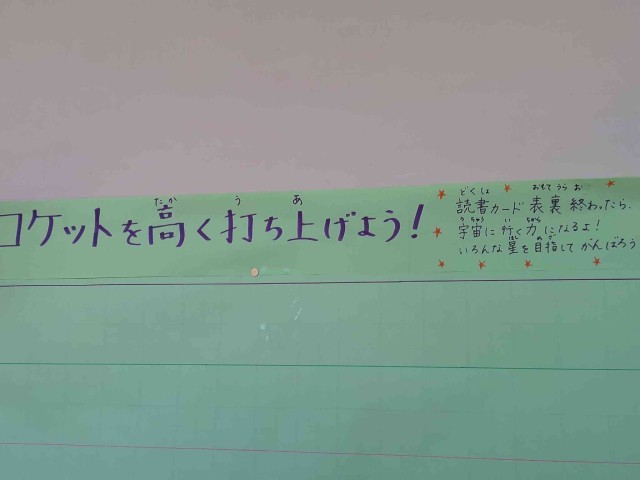 ロケットを高く打ち上げよう!
たか う あ
どくしょ おもて うら お
読書カード表裏終わったら、
うちゅう い ちから
宇宙に行く力になるよ!
ほし めざ
いろんな星を目指してがんばろう